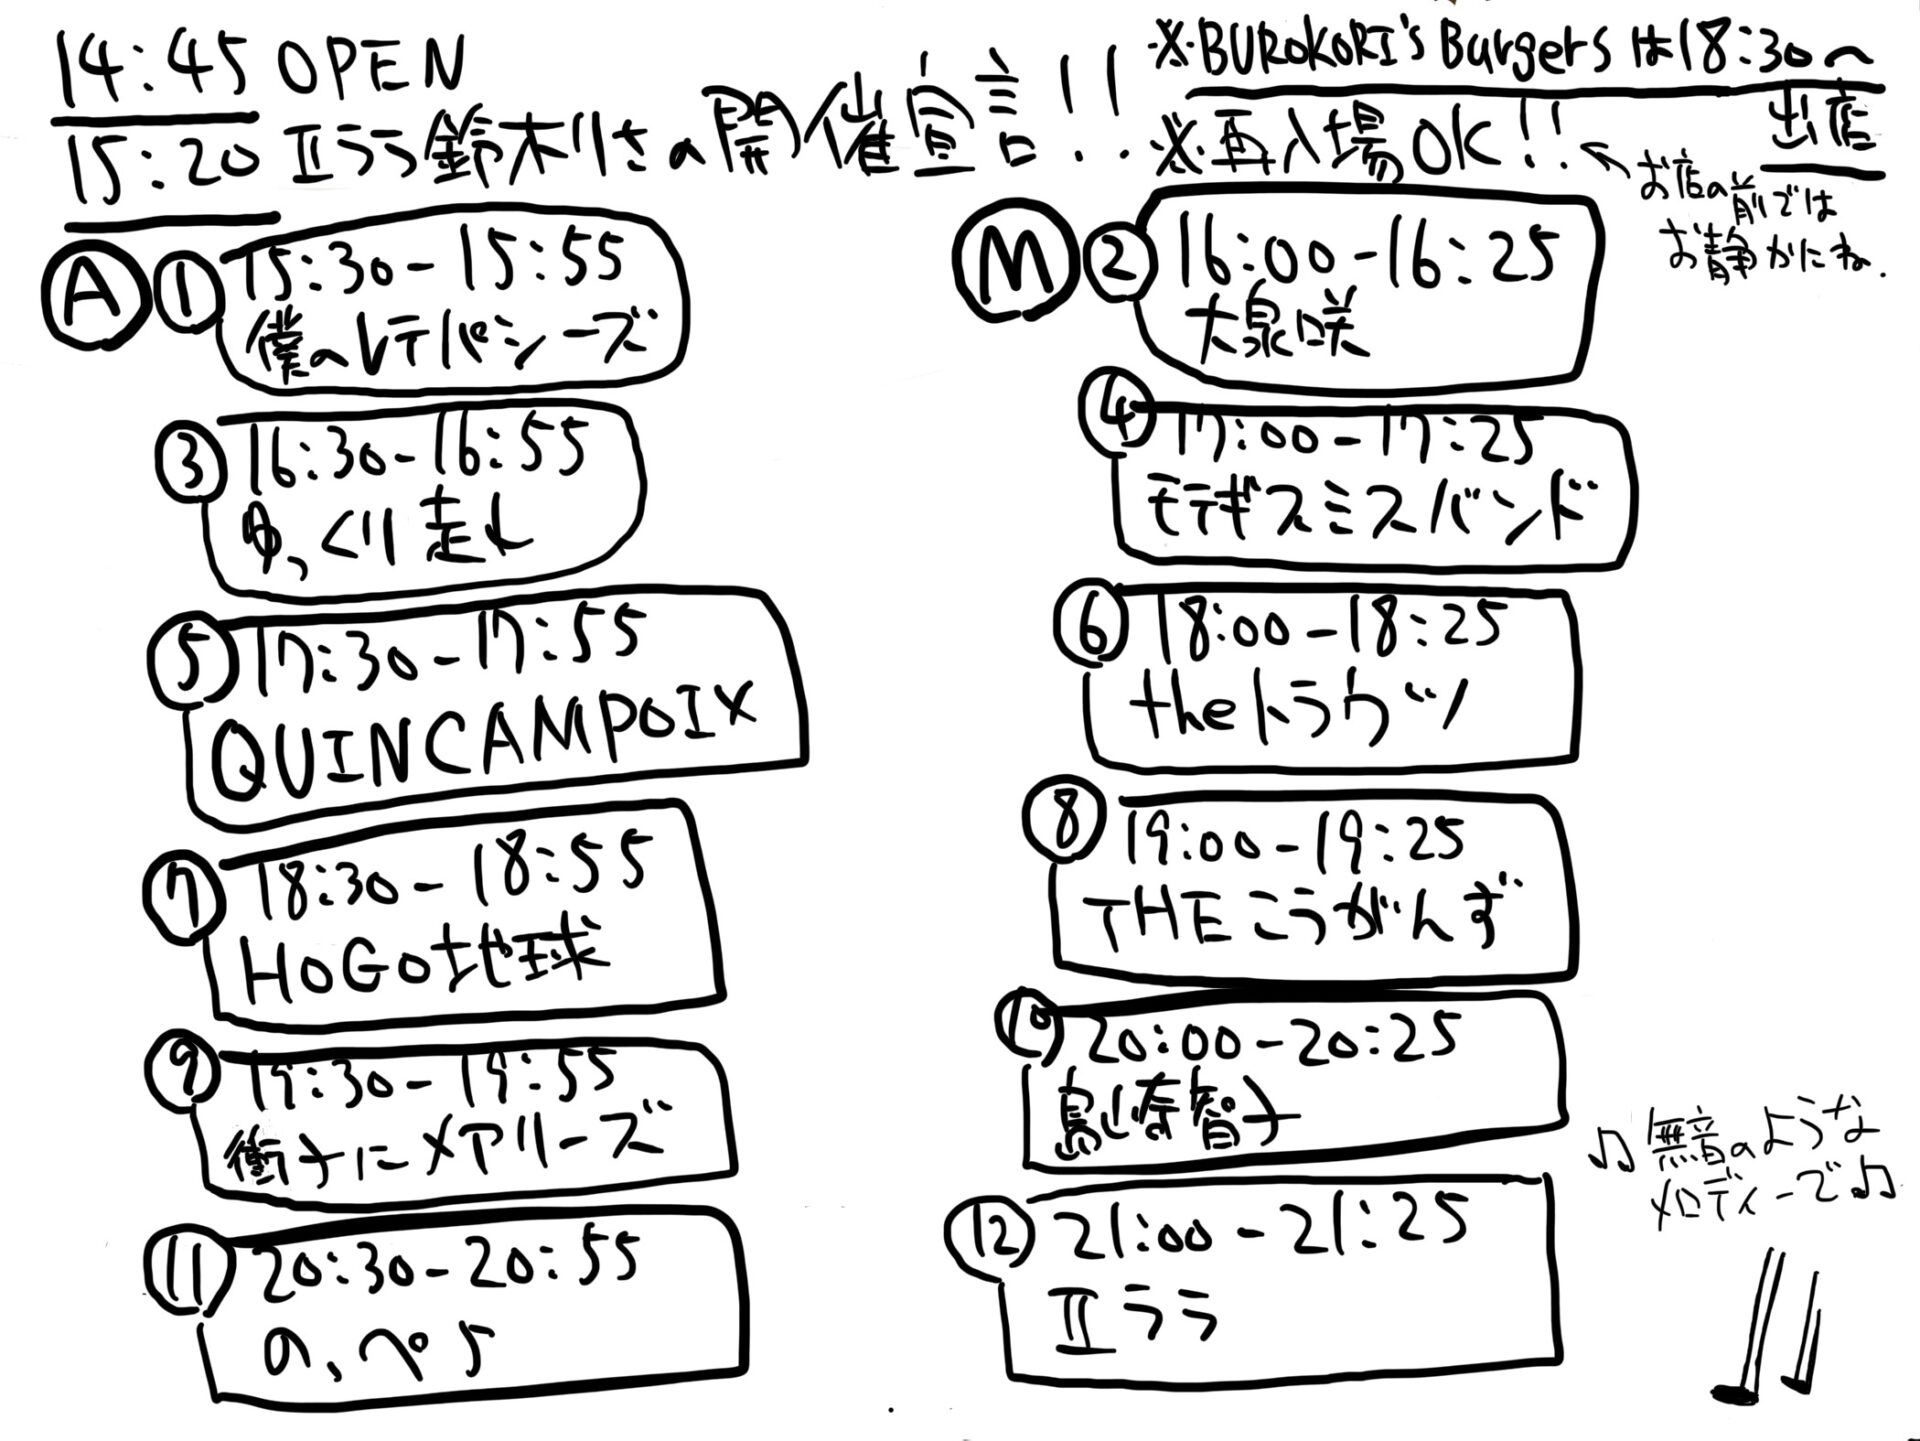 14:45 OPEN
15:20 Ⅱララ鈴木りさの開催宣言!!
※BUROKORI's Burgersは18:30〜
出店
※再入場OK!!
お店の前では
お静かにね.
A
① 15:30-15:55
僕のレテパシーズ
③ 16:30-16:55
ゆっくり走れ
⑤ 17:30-17:55
QUINCAMPOIX
⑦ 18:30-18:55
HOGO地球
⑨ 19:30-19:55
衝子にメアリーズ
⑪ 20:30-20:55
のっぺら
M
② 16:00-16:25
大泉咲
④ 17:00-17:25
モテギスミスバンド
⑥ 18:00-18:25
theトラウツ
⑧ 19:00-19:25
THEこうがんず
⑩ 20:00-20:25
島崎智子
⑫ 21:00-21:25
Ⅱララ
♫無音のような
メロディーで♫